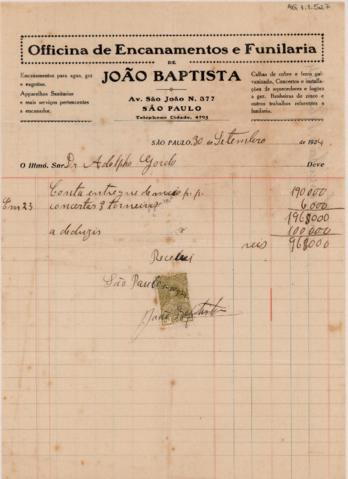 AG 1.1.527
Officina de Encanamentos e Funilaria
DE
JOÃO BAPTISTA
Av. São João N. 377
SÃO PAULO
Telephone Cidade, 4795
Encanamentos para agua, gaz
e exgottos.
Apparelhos Sanitarios
e mais serviços pertencentes
a encanador.
Calhas de cobre e ferro gal-
vanizado, Concertos e installa-
ções de aquecedores e fogões
a gaz. Banheiras de zinco e
outros trabalhos referentes a
funilaria.
SÃO PAULO, 30 de Setembro de 1924
O Illmo. Snr. Dr. Adolpho Gordo Deve
Conta entregue p. p. 190000
Em 23 concertos 3 torneiras 6.000
196000
a deduzir 100000
reis 96000
Recebi
São Paulo
João Baptista